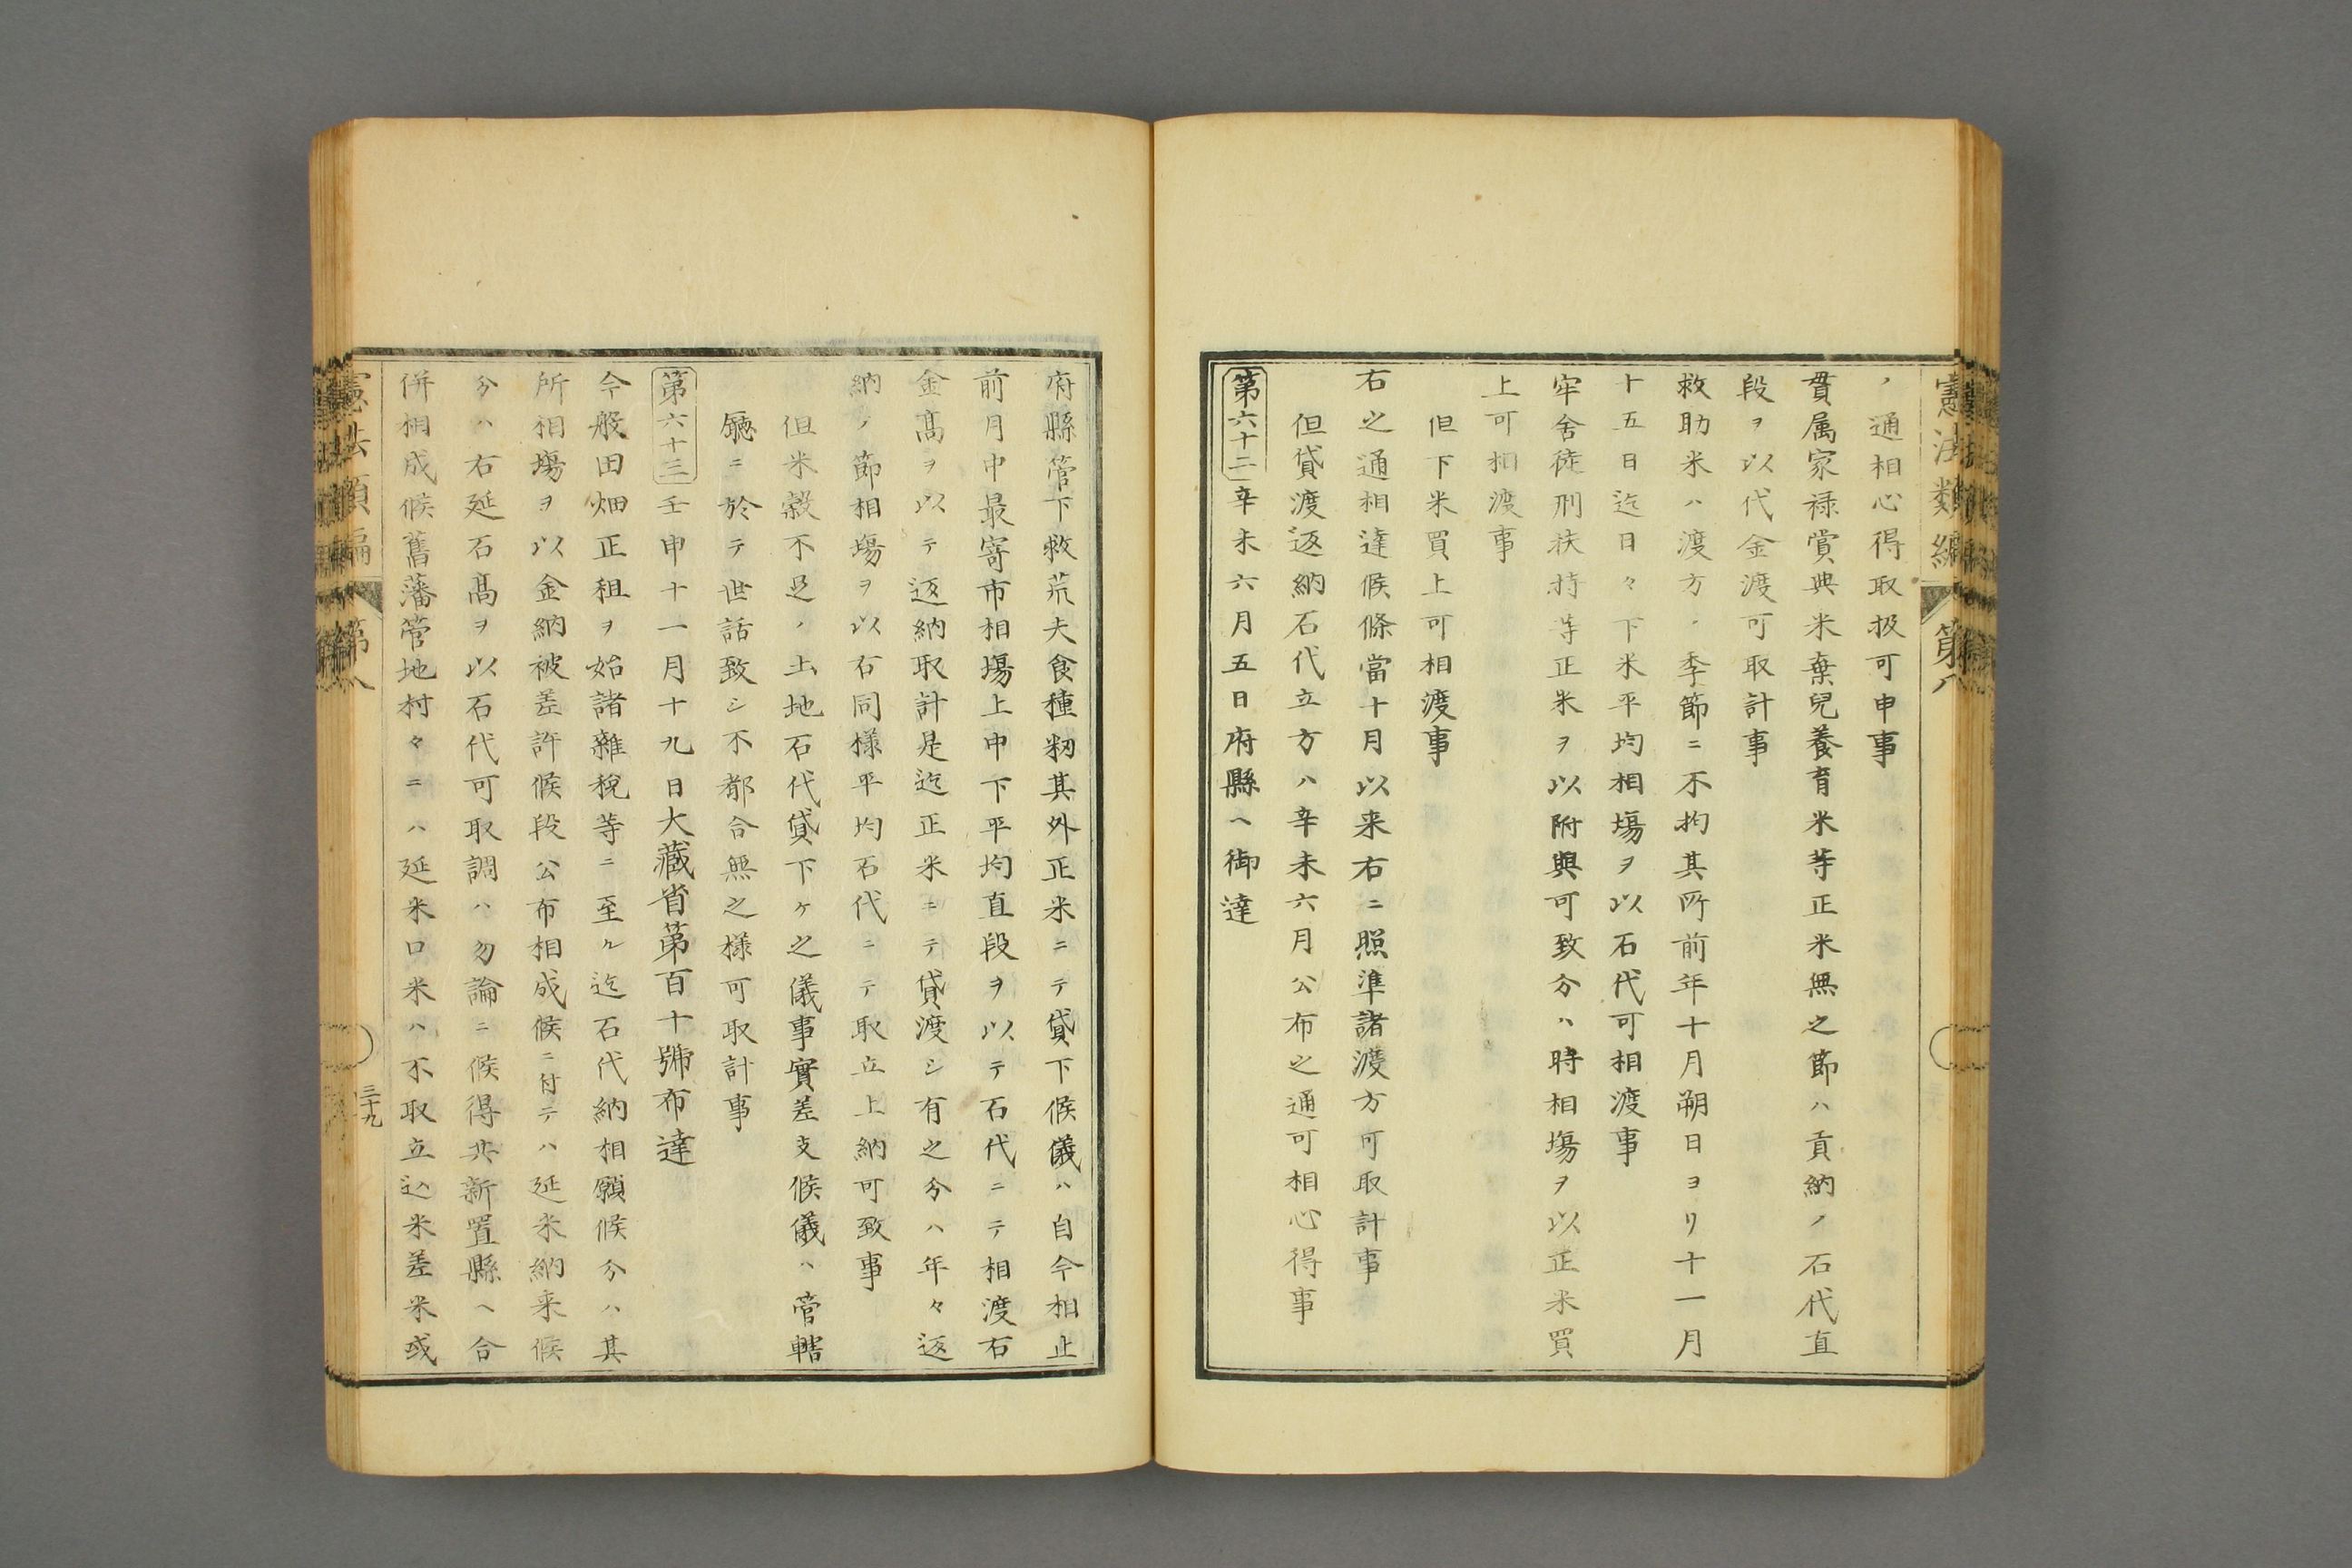 憲法類編 第八
ノ通相心得取扱可申事
貫属家禄賞典米棄兒養育米等正米無之節ハ貢納ノ石代直
段ヲ以代金渡可取計事
救助米ハ渡方ノ季節ニ不拘其所前年十月朔日ヨリ十一月
十五日迄日々下米平均相塲ヲ以石代可相渡事
牢舍徒刑扶持等正米ヲ以附與可致分ハ時相塲ヲ以正米買
上可相渡事
但下米買上可相渡事
右之通相達候條當十月以来右ニ照準諸渡方可取計事
但貸渡返納石代立方ハ辛未六月公布之通可相心得事
第六十二 辛未六月五日府縣ヘ御達
府縣管下救荒夫食種籾其外正米ニテ貸下候儀ハ自今相止
前月中最寄市相塲上中下平均直段ヲ以テ石代ニテ相渡石
金髙ヲ以テ返納取計是迄正米ニテ貸渡シ有之分ハ年々返
納ノ節相塲ヲ以石同様平均石代ニテ取立上納可致事
但米穀不足ノ土地石代貸下ケ之儀事實差支候儀ハ管轄
廳ニ於テ世話致シ不都合無之様可取計事
第六十三 壬申十一月十九日大藏省第百十號布達
今般田畑正租ヲ始諸雜税等ニ至ル迄石代納相願候分ハ其
所相塲ヲ以金納被差許候段公布相成候ニ付テハ延米納来候
分ハ右延石髙ヲ以石代可取調ハ勿論ニ候得共新置縣ヘ合
併相成候舊藩管地村々ニハ延米口米ハ不取立込米差米或
憲法類編 第八
三十九